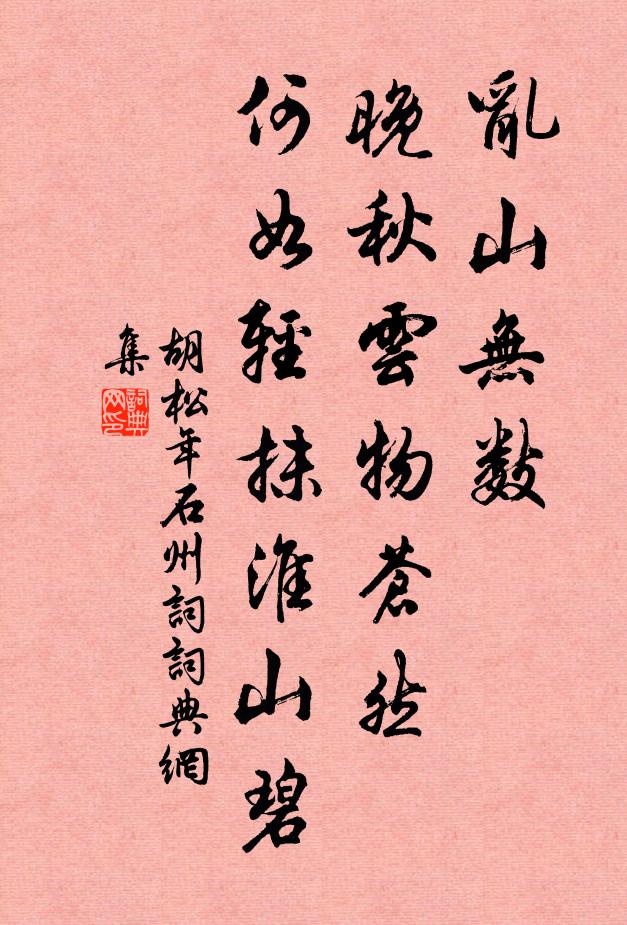 亂山無數
晚秋雲物蒼然
何如輕抹淮山碧
胡松年石州詞詞典網
集
詞典
网印